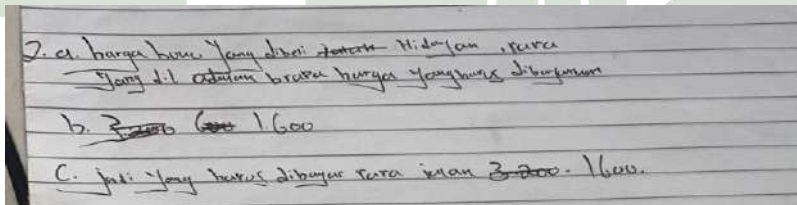 2. a. harga yang dibeli Hidayah, rara
yang di adalah brapa harga yang harus dibayarkan
b. 3.200 600 1.600
C. jadi yang harus dibayar rara 3.200. 1600.